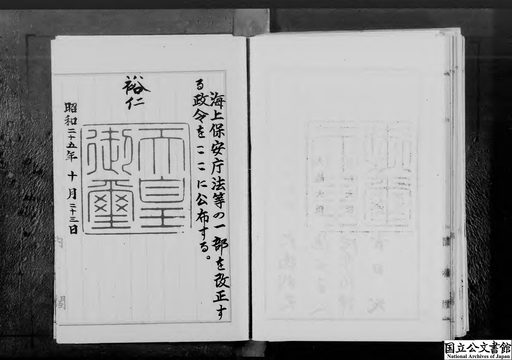 海上保安庁法等の一部を改正す
る政令をここに公布する。
裕仁
天皇
御璽
昭和二十五年十月二十三日
内閣
国立公文書館
National Archives of Japan